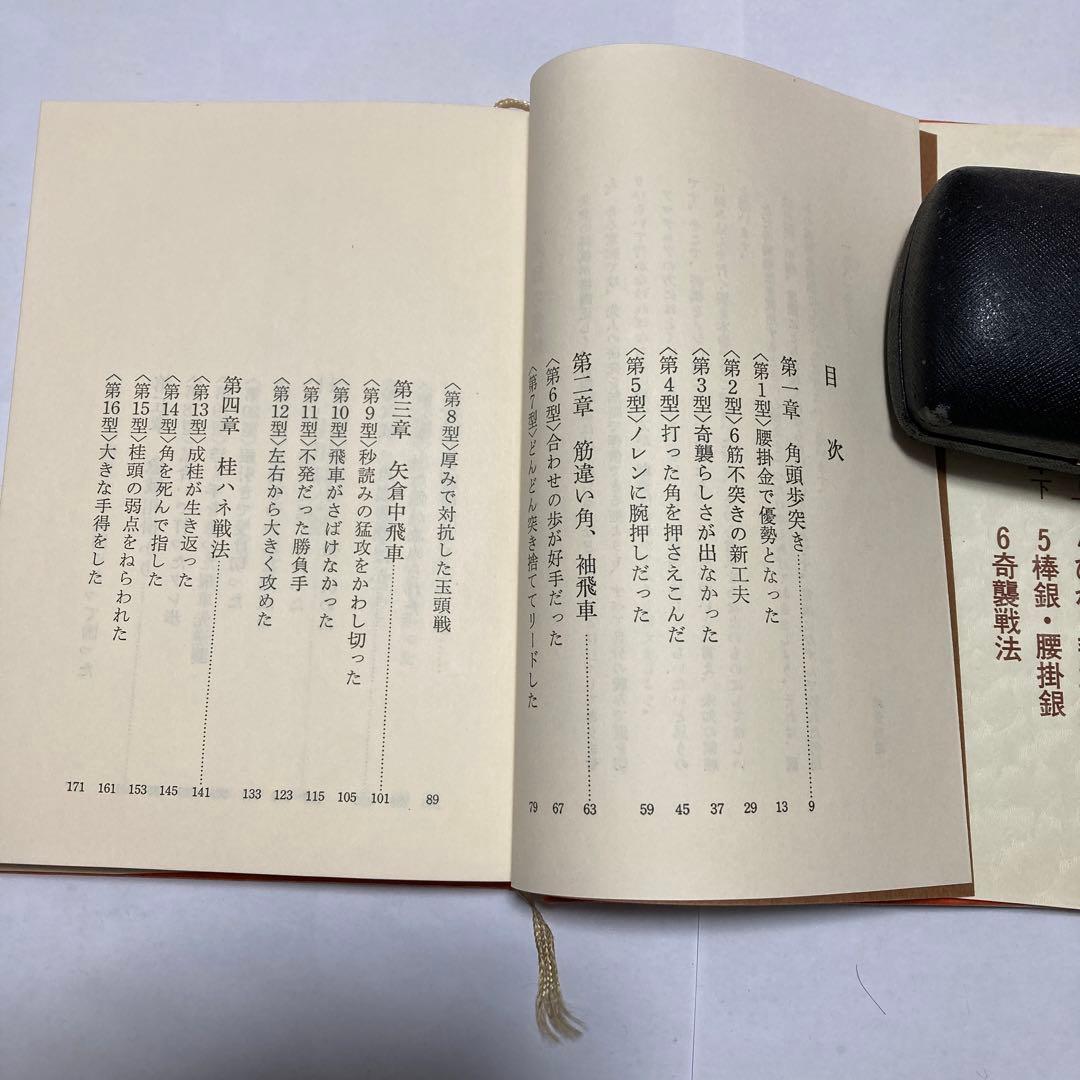 目次
第一章 角頭歩突き 9
〈第1型〉腰掛金で優勢となった 13
〈第2型〉6筋不突きの新工夫 29
〈第3型〉奇襲らしさが出なかった 37
〈第4型〉打った角を押さえこんだ 45
〈第5型〉ノレンに腕押しだった 59
第二章 筋違い角、袖飛車 63
〈第6型〉合わせの歩が好手だった 67
〈第7型〉どんどん突き捨ててリードした 79
〈第8型〉厚みで対抗した玉頭戦 89
第三章 矢倉中飛車 101
〈第9型〉秒読みの猛攻をかわし切った 105
〈第10型〉飛車がさばけなかった 115
〈第11型〉不発だった勝負手 123
〈第12型〉左右から大きく攻めた 133
第四章 桂ハネ戦法 141
〈第13型〉成桂が生き返った 145
〈第14型〉角を死んで指した 153
〈第15型〉桂頭の弱点をねらわれた 161
〈第16型〉大きな手得をした 171
下
5棒銀・腰掛銀
6奇襲戦法